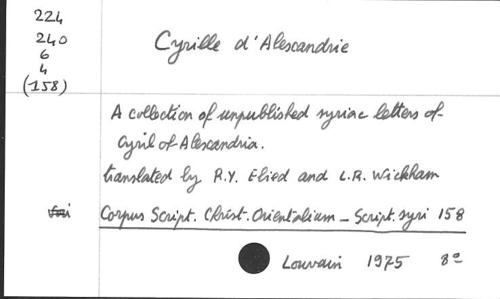 224
240
6
4
(158)
Cyrille d'Alexandrie
A collection of unpublished syriac letters of
Cyril of Alexandria.
translated by R.Y. Ebied and L.R. Wickham
Corpus Script. Christ. Orientalium - Script. syri 158
Louvain 1975 8°